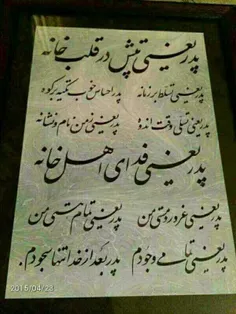 پدر یعنی تپش در قلب خانه
پدر یعنی تسلط بر زمانه پدر احساس خوب تکیه بر کوه
پدر یعنی تسلی وقت اندوه پدر یعنی ز من نام و نشانه
پدر یعنی فدای اهل خانه
پدر یعنی غرور و مستی من پدر یعنی تمام هستی من
پدر یعنی تمامی وجودم پدر بعد از خدا تنها سجودم.
2015/04/23